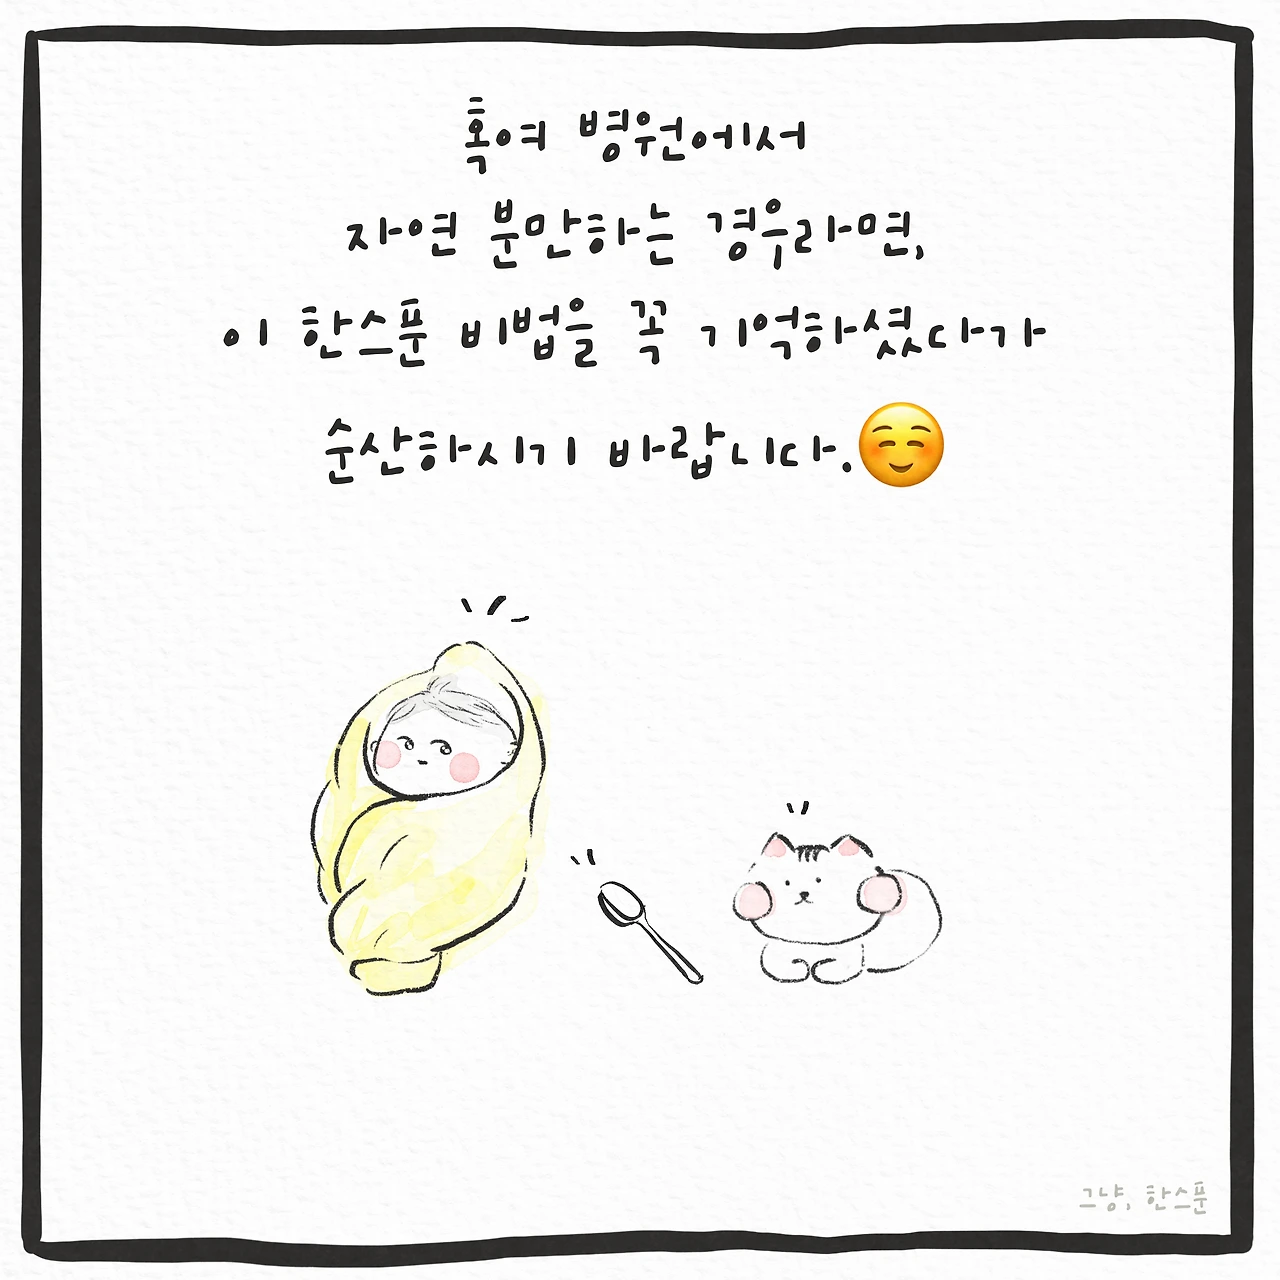 혹여 병원에서
자연 분만하는 경우라면,
이 한스푼 비법을 꼭 기억하셨다가
순산하시기 바랍니다.☺️
그냥, 한스푼